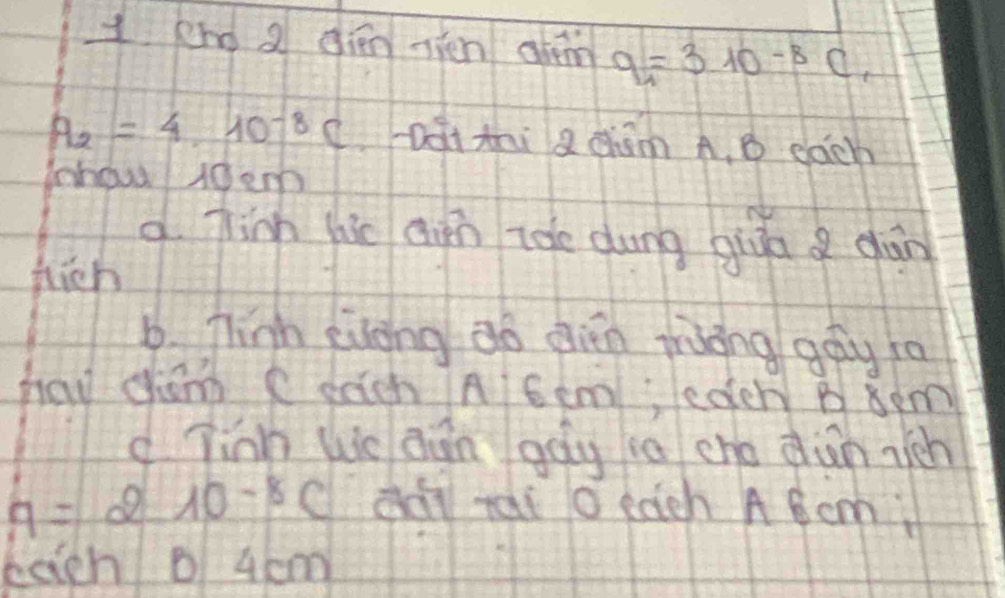 1. Cho 2 điện tích điểm q₁ = 3.10⁻⁸ C,
q₂ = 4.10⁻⁸ C. Đặt tại 2 điểm A, B cách
nhau 10cm
a. Tính lực điện tác dụng giữa 2 điện
tích
b. Tính cường độ điện trường gây ra
tại điểm C cách A 6cm; cách B 8cm
c. Tính lực điện gây ra cho điện tích
q = 2.10⁻⁸ C đặt tại O cách A 6cm;
cách B 4cm